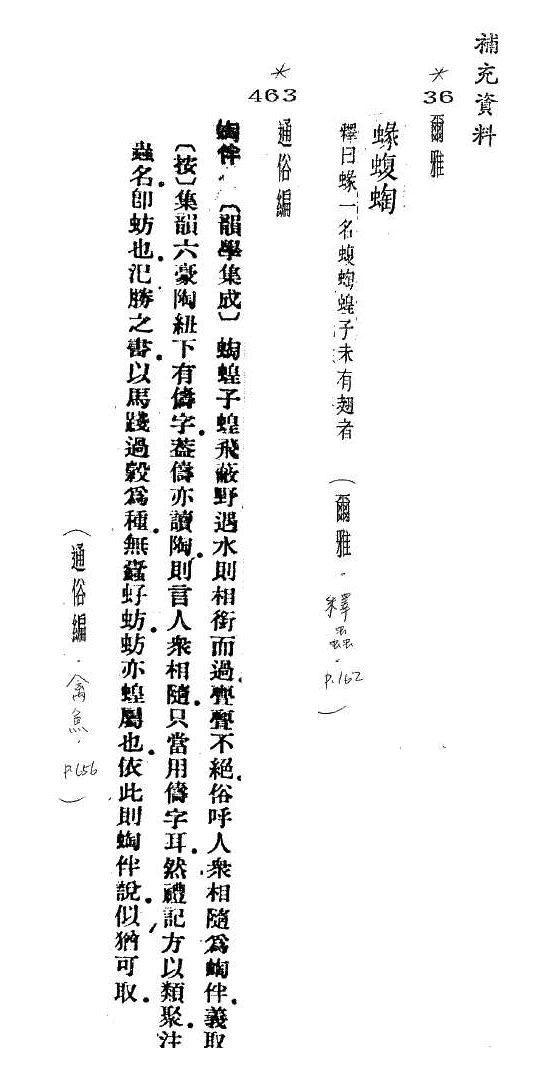 補充資料
*
36
爾雅
蝝蝮蜪
釋曰蝝一名蝮蜪蝗子未有翅者 (爾雅.釋蟲.p.162)
*
463
通俗編
蜪伴.〔韻學集成〕蜪蝗子蝗飛蔽野遇水則相銜而過.亹亹不絕.俗呼人衆相隨爲蜪伴.義取
〔按〕集韻六豪陶紐下有儔字.葢儔亦讀陶.則言人衆相隨.只當用儔字耳.然禮記方以類聚.注
蟲名卽蚄也.氾勝之書.以馬踐過穀爲種.無虸蚄.蚄亦蝗屬也.依此則蜪伴說.似猶可取.
(通俗編.禽魚.p.656)